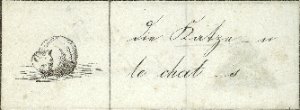 die Katze - n
le chat - s